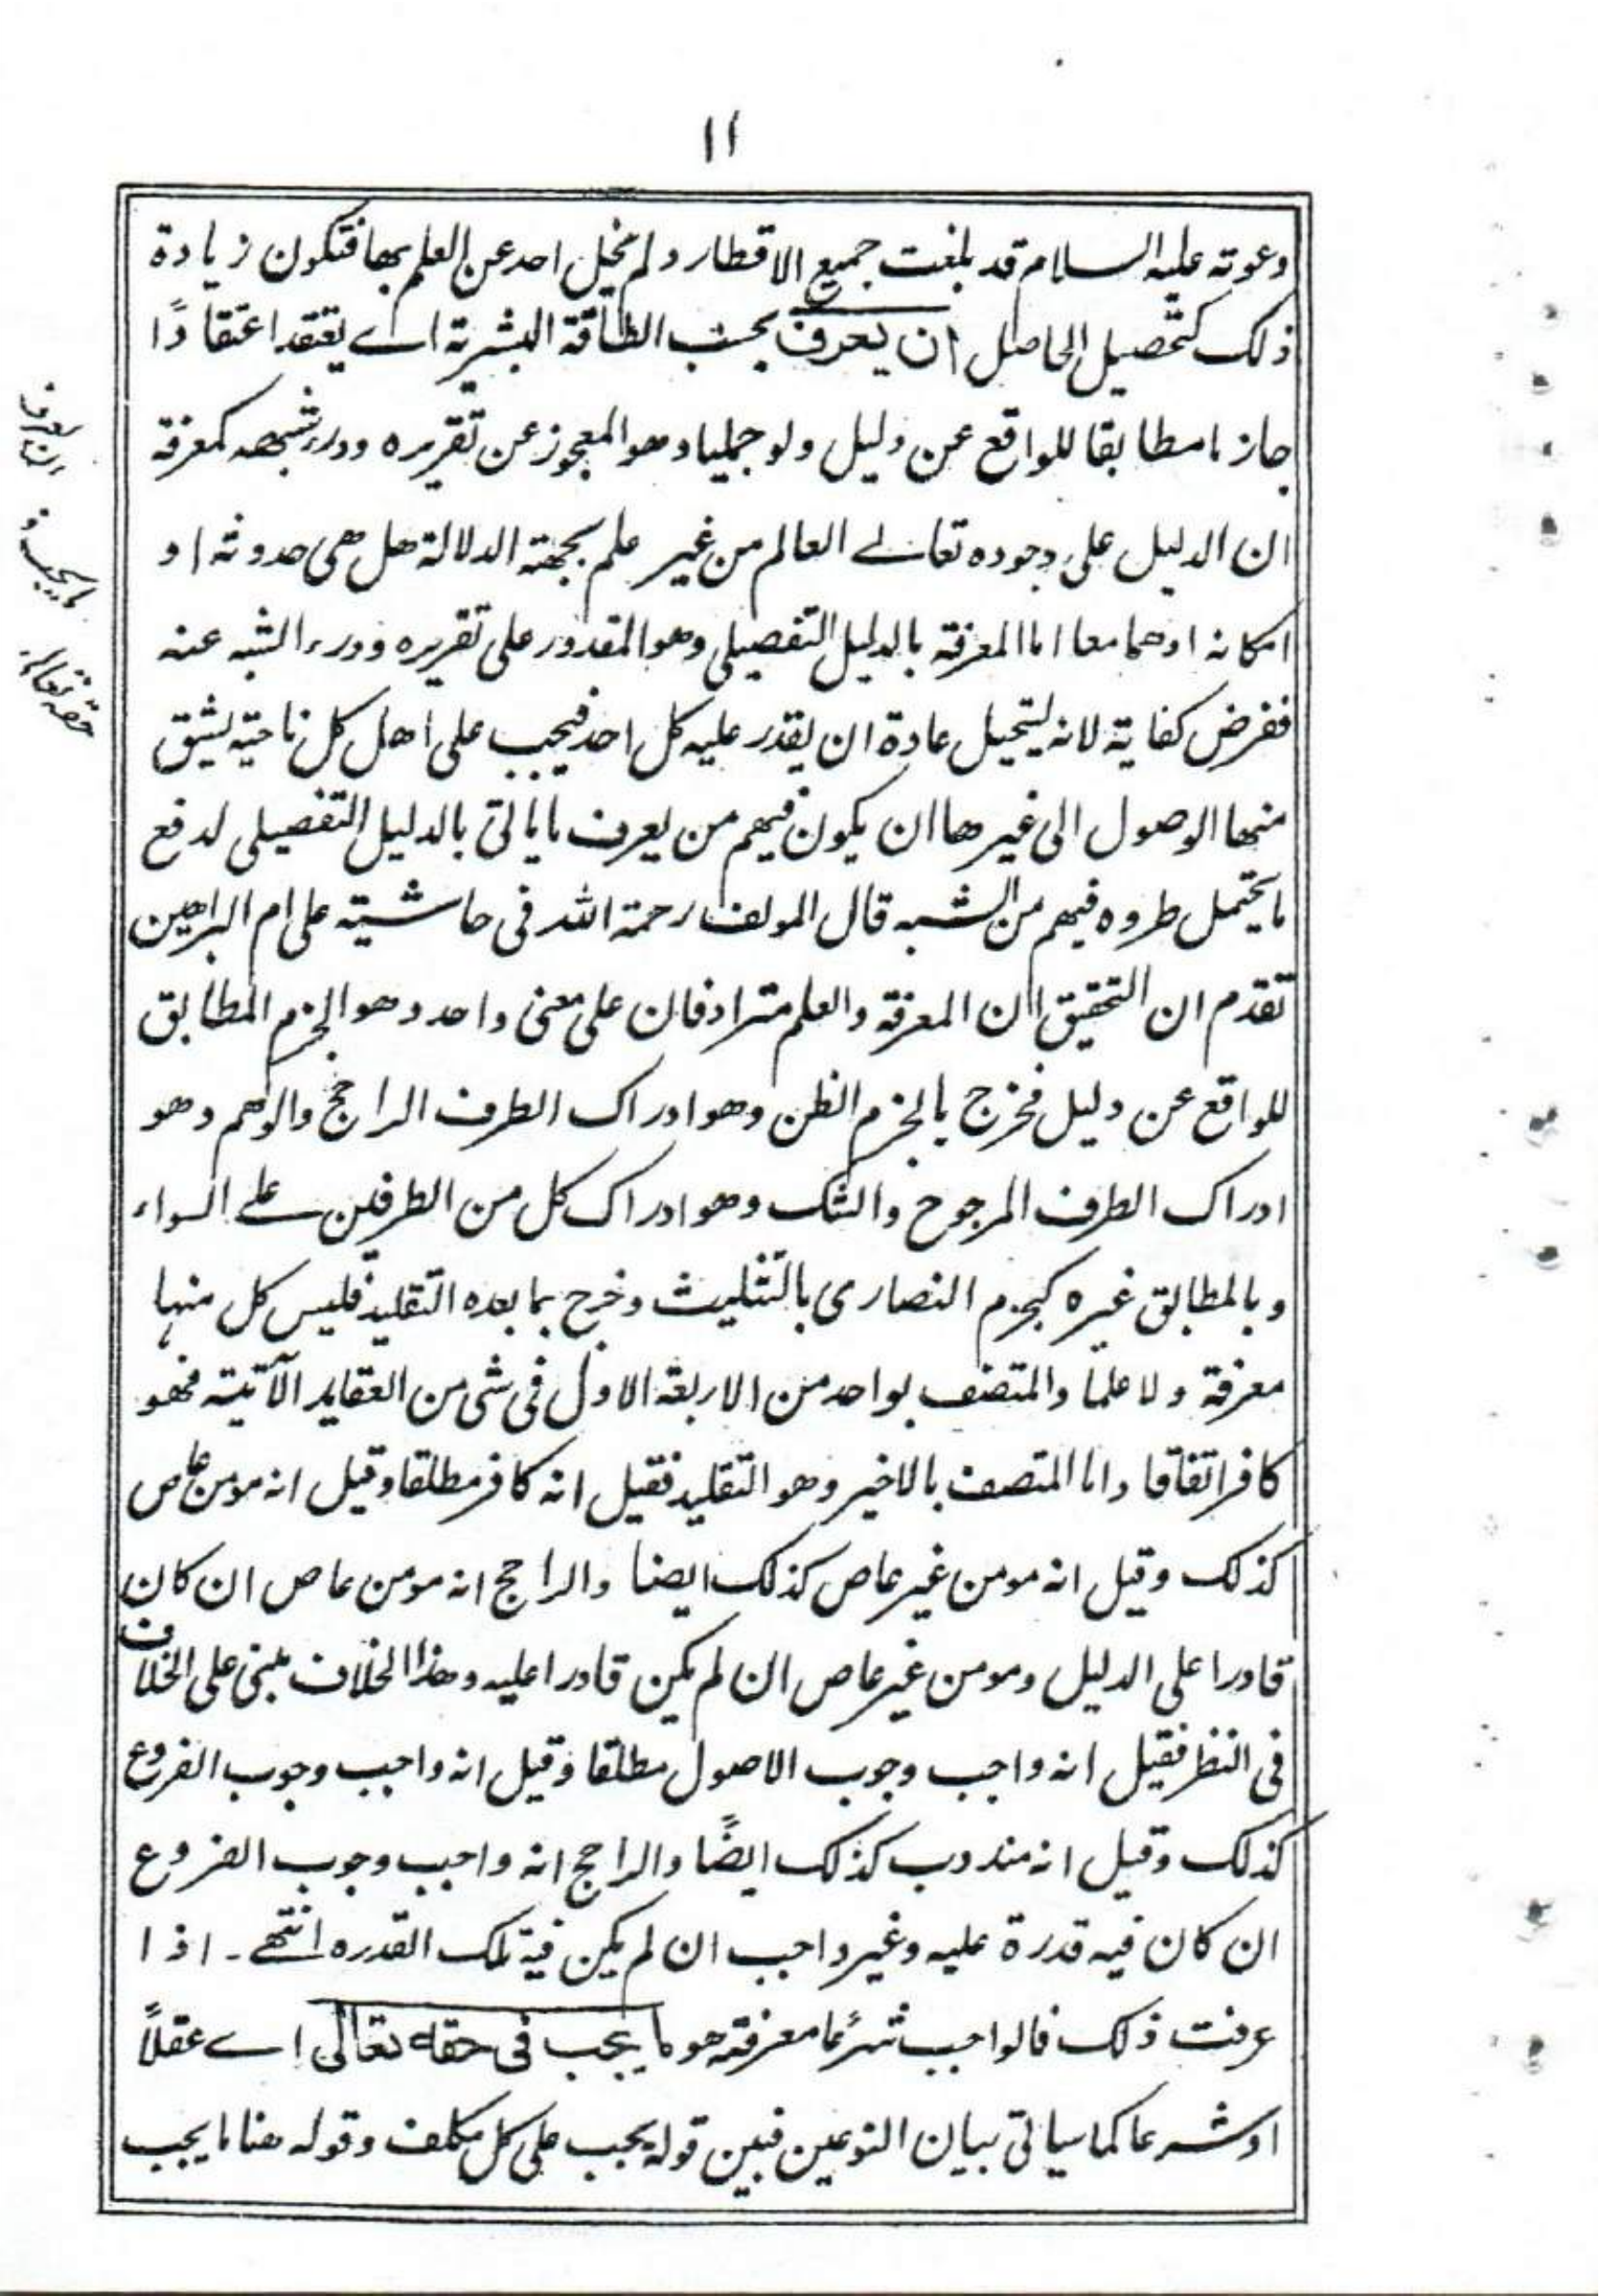 ١١
دعوته عليه السلام قد بلغت جميع الاقطار ولم يخل احد عن العلم بها فتكون زيادة
ذلك كتحصيل الحاصل ان يعرف بحسب الطاقة البشرية اے يعتقد اعتقادًا
جازما مطابقا للواقع عن دليل ولو جمليا وهو المعجوز عن تقريره ودرء شبهه كمعرفة
ان الدليل على وجوده تعالے العالم من غير علم بجهة الدلالة هل هى حدوثه او
امكانه اوهما معا اما المعرفة بالدليل التفصيلى وهو المقدور على تقريره ودرء الشبه عنه
ففرض كفاية لانه يستحيل عادة ان يقدر عليه كل احد فيجب على اهل كل ناحية يشق
منها الوصول الى غيرها ان يكون فيهم من يعرف ما ياتى بالدليل التفصيلى لدفع
ما يحتمل طروه فيهم من الشبه قال المولف رحمة الله فى حاشيته على ام البراهين
تقدم ان التحقيق ان المعرفة والعلم مترادفان على معنى واحد وهو الجزم المطابق
للواقع عن دليل فخرج بالجزم الظن وهو ادراك الطرف الراجح والوهم وهو
ادراك الطرف المرجوح والشك وهو ادراك كل من الطرفين علے السواء
وبالمطابق غيره كجزم النصارى بالتثليث وخرج بما بعده التقليد فليس كل منها
معرفة ولا علمًا والمتصف بواحد من الاربعة الاول فى شى من العقايد الآتية فهو
كافر اتفاقا واما المتصف بالاخير وهو التقليد فقيل انه كافر مطلقا وقيل انه مومن عاص
كذلك وقيل انه مومن غير عاص كذلك ايضا والراجح انه مومن عاص ان كان
قادرا على الدليل ومومن غير عاص ان لم يكن قادرا عليه وهذا الخلاف مبنى على الخلاف
فى النظر فقيل انه واجب وجوب الاصول مطلقا وقيل انه واجب وجوب الفروع
كذلك وقيل انه مندوب كذلك ايضًا والراجح انه واجب وجوب الفروع
ان كان فيه قدرة عليه وغير واجب ان لم يكن فيه تلك القدره انتهے ـ اذا
عرفت ذلك فالواجب شرعًا معرفته هو ما يجب فى حقه تعالى اے عقلًا
او شرعا كما سياتى بيان النوعين فبين قوله يجب على كل مكلف وقوله هنا ما يجب
ان يعرف
ما يجب فى
حقه تعالے